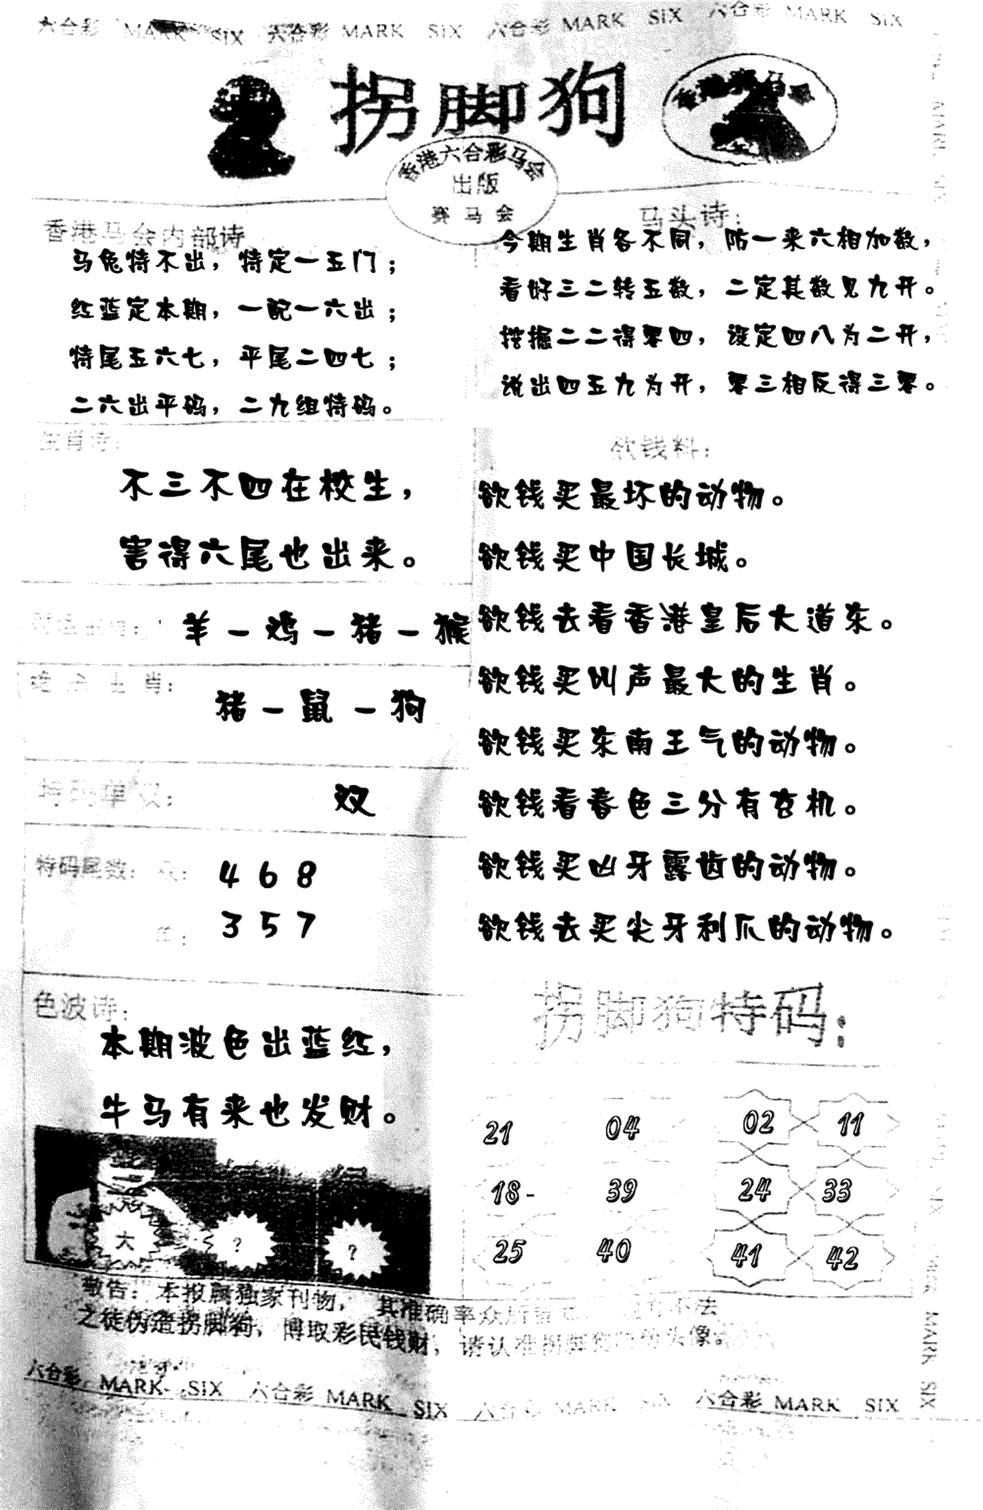 六合彩 MARK SIX 六合彩 MARK SIX 六合彩 MARK SIX 六合彩 MARK SIX
拐脚狗
香港赛马会
香港六合彩马会
出版
赛马会
香港马会内部诗
马兔特不出，特定一五门；
红蓝定本期，一配一六出；
特尾五六七，平尾二四七；
二六出平码，二九组特码。
马头诗：
今期生肖各不同，防一来六相加数，
看好三二转五数，二定其数见九开。
挖掘二二得零四，设定四八为二开，
说出四五九为开，零三相反得三零。
生肖诗：
不三不四在校生，
害得六尾也出来。
羊－鸡－猪－猴
绝杀生肖：
猪－鼠－狗
特码单双：
双
特码尾数：双：468
单：357
色波诗：
本期波色出蓝红，
牛马有来也发财。
大 ? ?
欲钱料：
欲钱买最坏的动物。
欲钱买中国长城。
欲钱去看香港皇后大道东。
欲钱买叫声最大的生肖。
欲钱买东南王气的动物。
欲钱看春色三分有玄机。
欲钱买凶牙露齿的动物。
欲钱去买尖牙利爪的动物。
拐脚狗特码：
21 04 02 11
18- 39 24 33
25 40 41 42
敬告：本报属独家刊物，其准确率众所 不法
之徒伪造拐脚狗，博取彩民钱财，请认准拐脚狗 头像。
六合彩 MARK SIX 六合彩 MARK SIX 六合彩 MARK SIX 六合彩 MARK SIX
MARK SIX